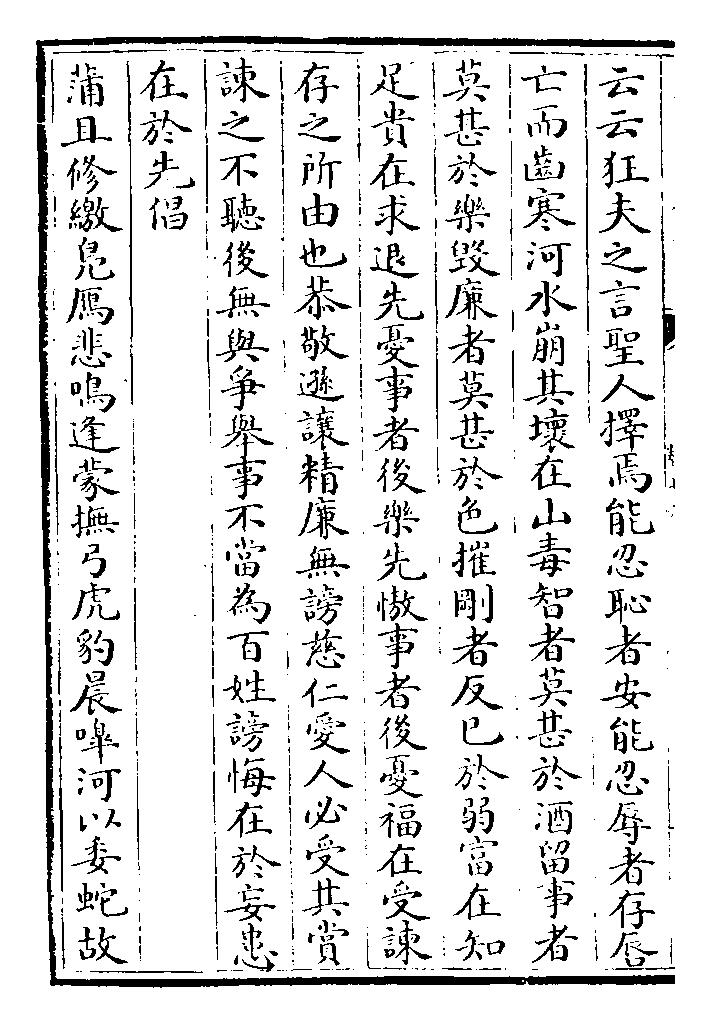 云云狂夫之言聖人擇焉能忍恥者安能忍辱者存唇
亡而齒寒河水崩其壞在山毒智者莫甚於酒留事者
莫甚於樂毀廉者莫甚於色摧剛者反巳於弱富在知
足貴在求退先憂事者後樂先慠事者後憂福在受諫
存之所由也恭敬遜讓精廉無謗慈仁愛人必受其賞
諫之不聽後無與爭舉事不當為百姓謗悔在於妄患
在於先倡
蒲且修繳鳧鴈悲鳴逢蒙撫弓虎豹晨嘷河以委蛇故